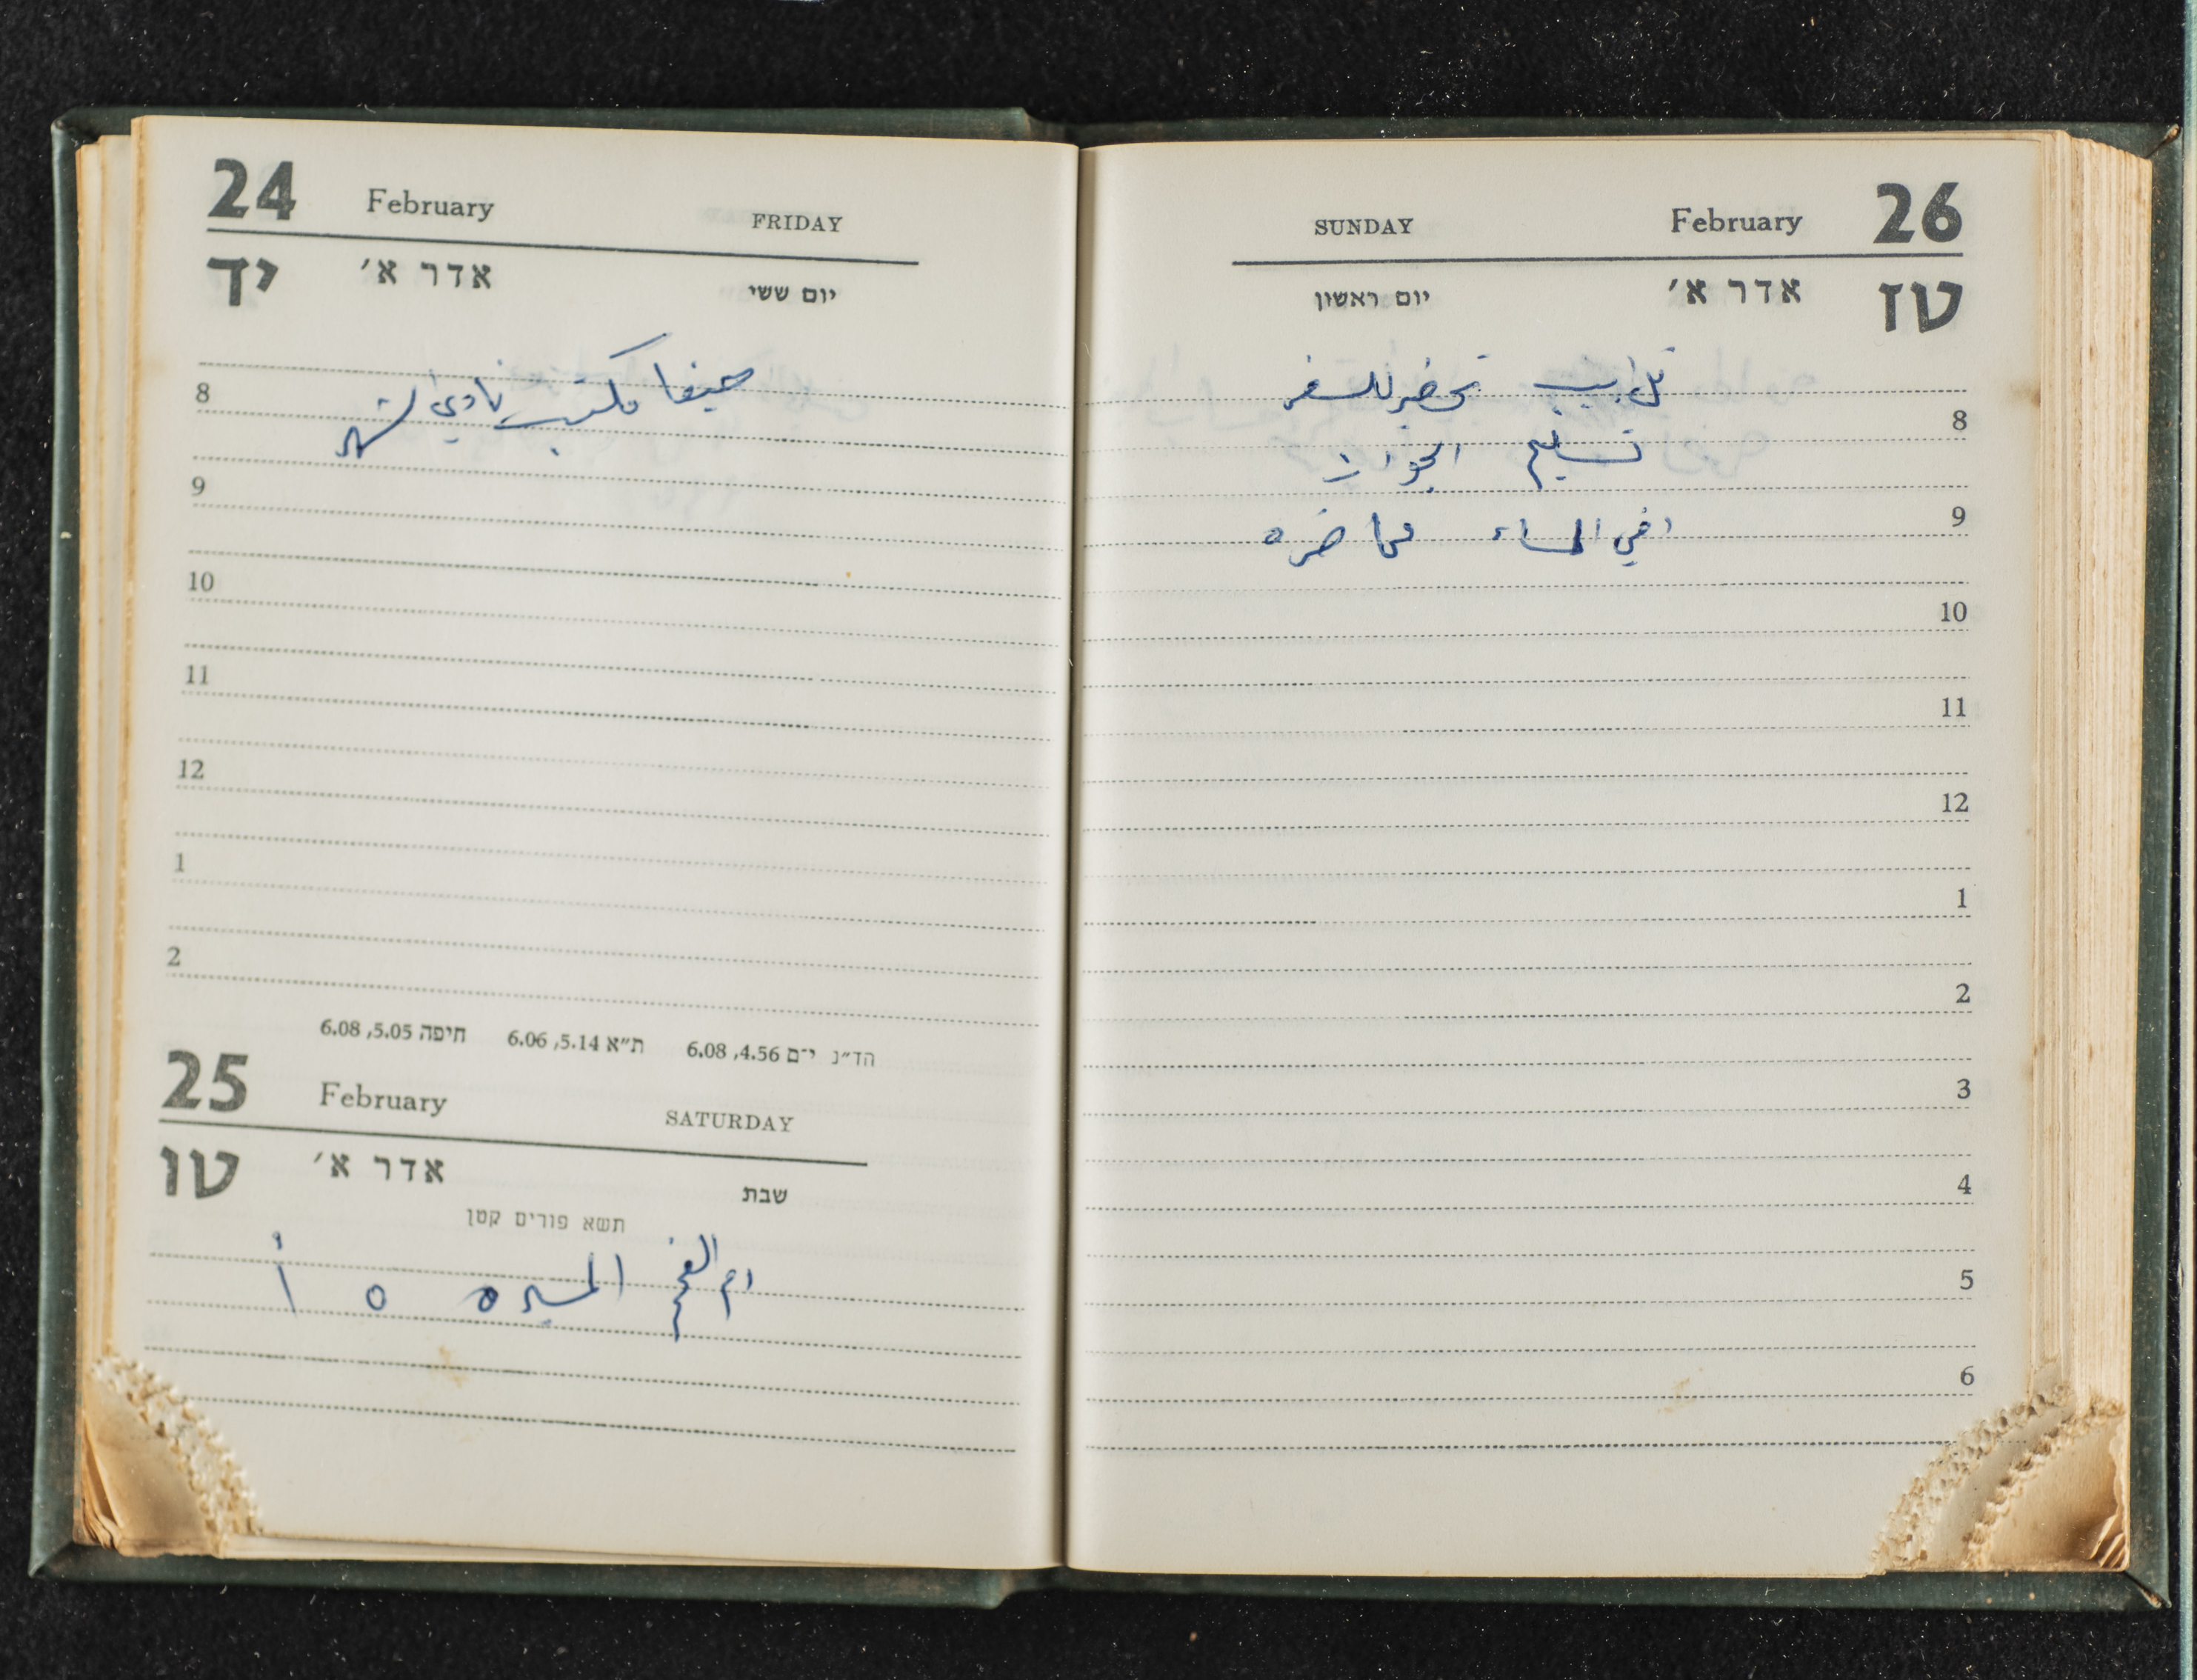 24 February FRIDAY
יד אדר א׳ יום ששי
8
حيفا مكتب نادي
9
10
11
12
1
2
הד״נ י־ם 4.56, 6.08 ת״א 5.14, 6.06 חיפה 5.05, 6.08
25 February SATURDAY
טו אדר א׳ שבת
תשא פורים קטן
ام الفحم المسيره 5 أ
SUNDAY February 26
יום ראשון אדר א׳ טז
تل ابيب تحضير للسفر
8
تسليم الجواز
9
وفي المساء محاضره
10
11
12
1
2
3
4
5
6